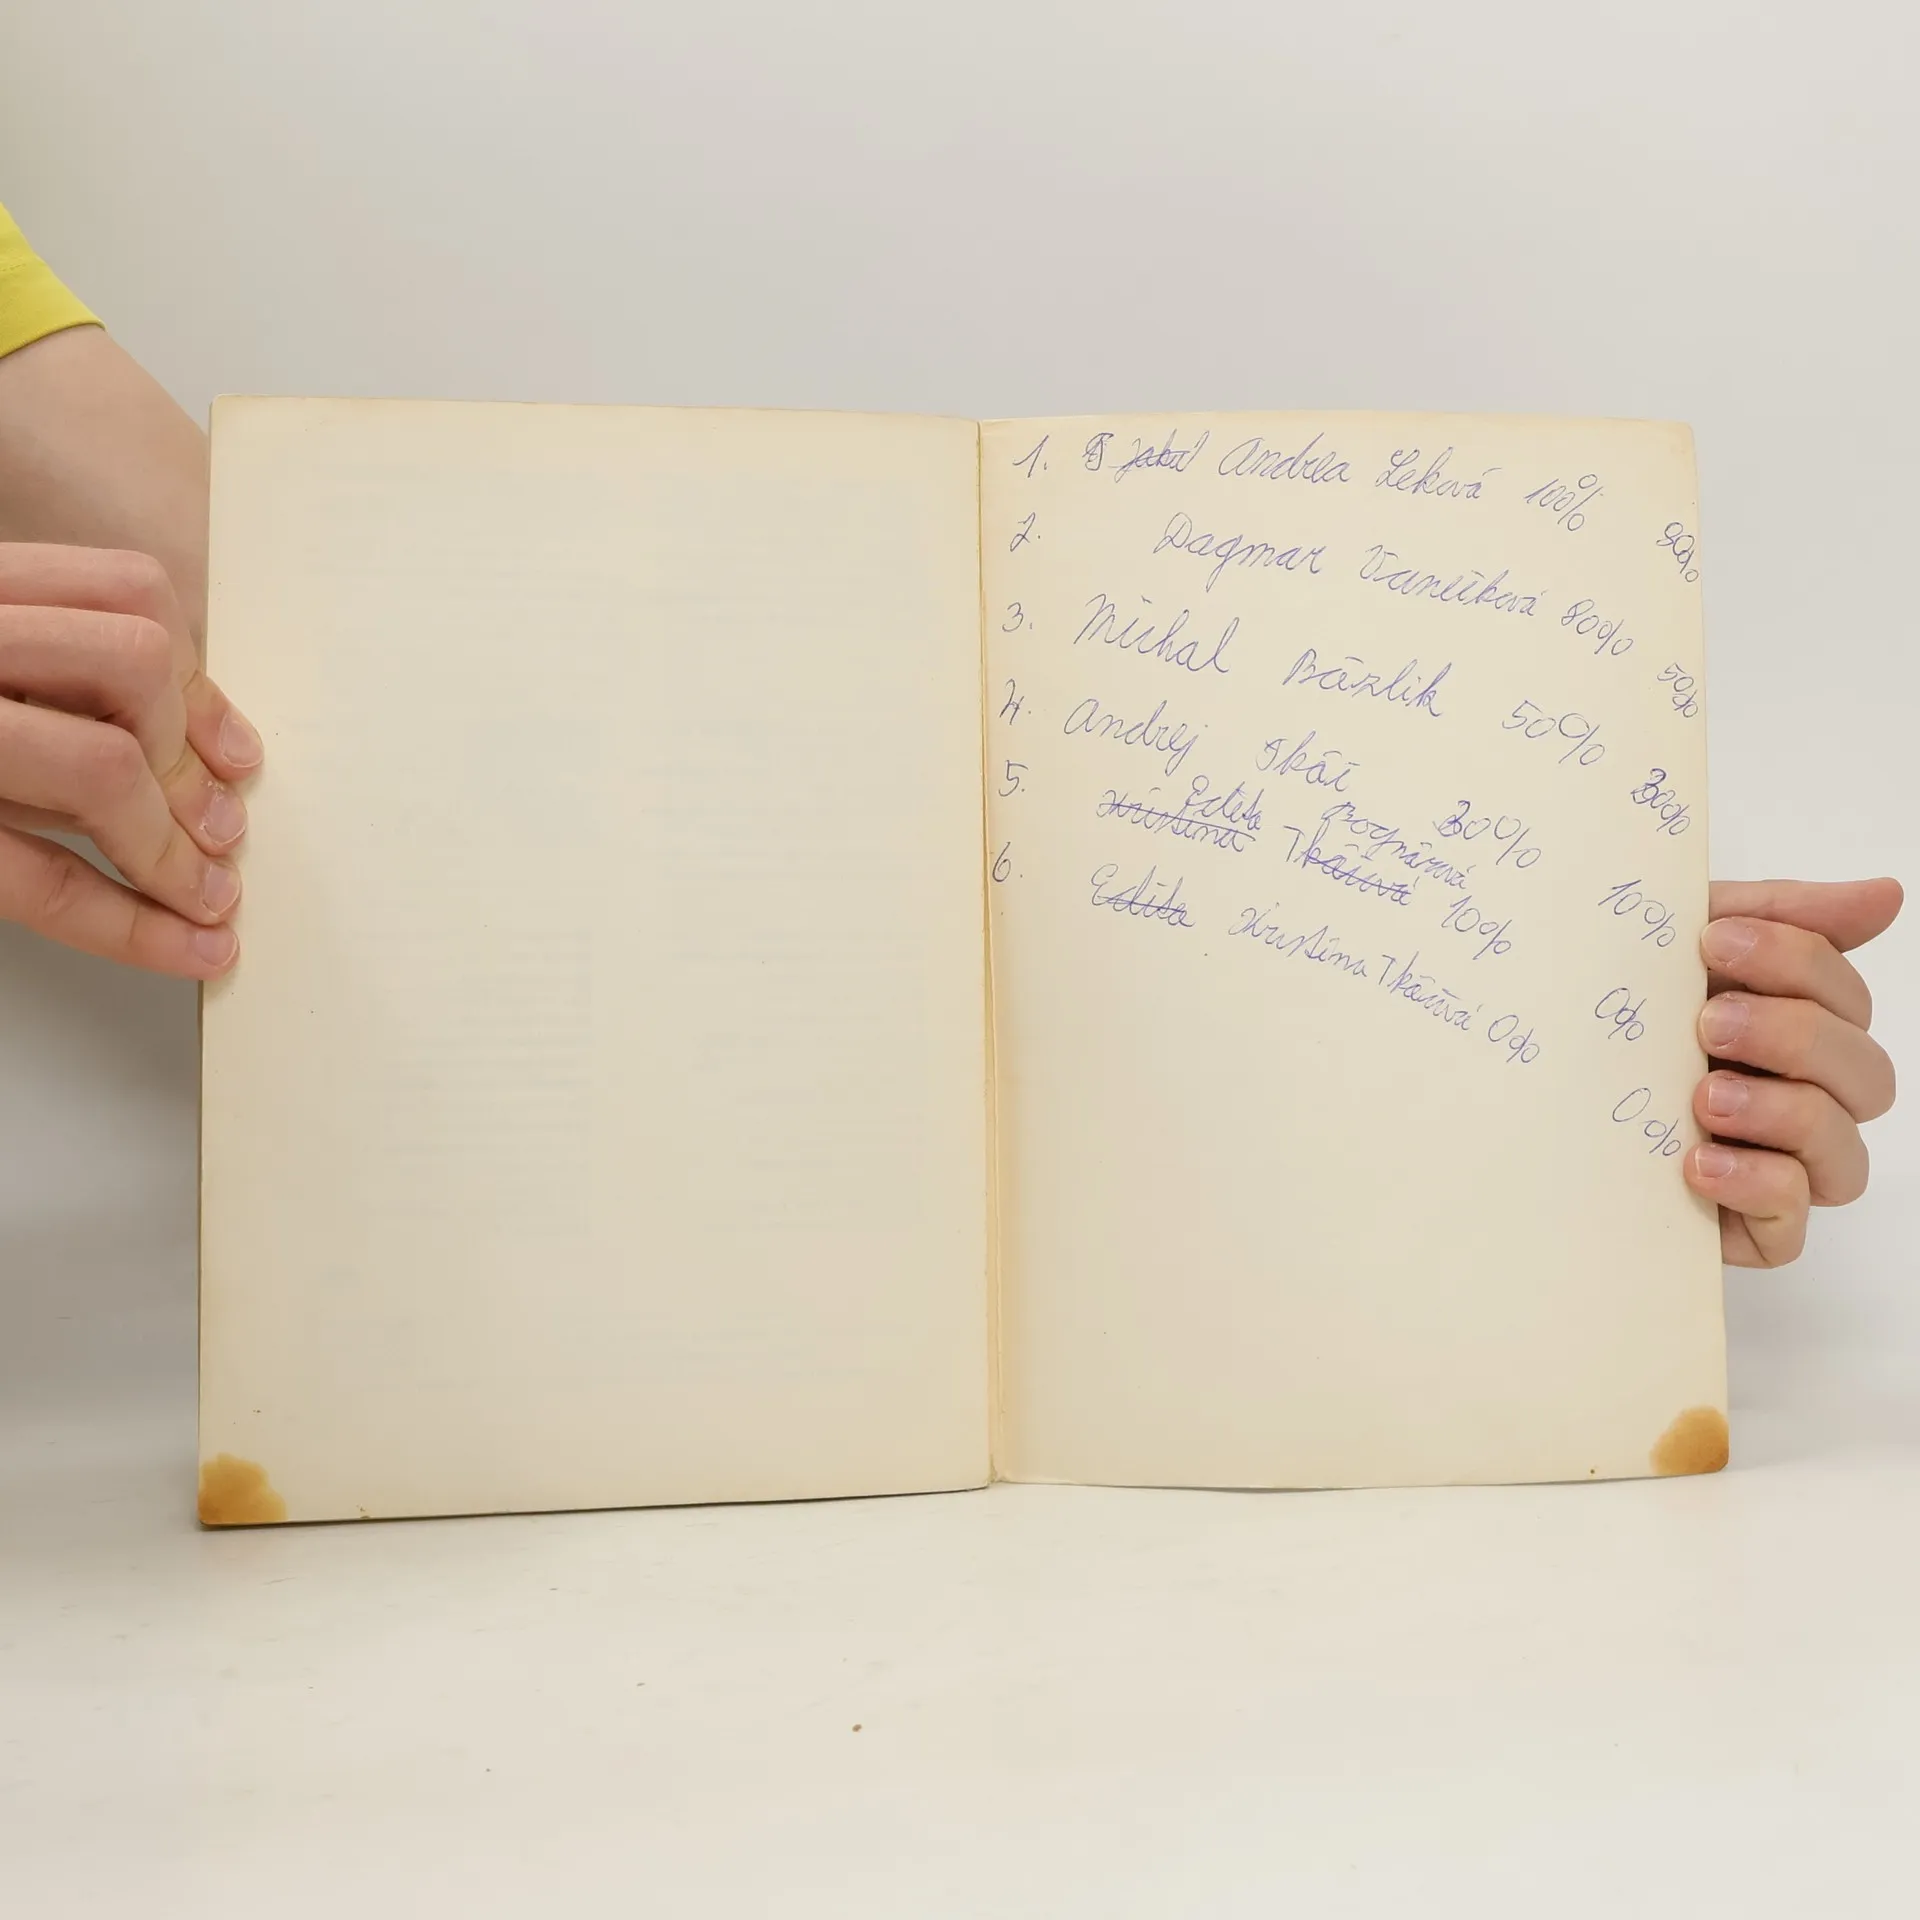 1. Andrea Leková 100%
80%
2. Dagmar Vanečková 80%
50%
3. Michal Bázlik 50%
30%
4. Andrej Tkáč 30%
10%
5. Edita Bognárová
Kristína Tkáčová 10%
0%
6. Edita Kristína Tkáčová 0%
0%